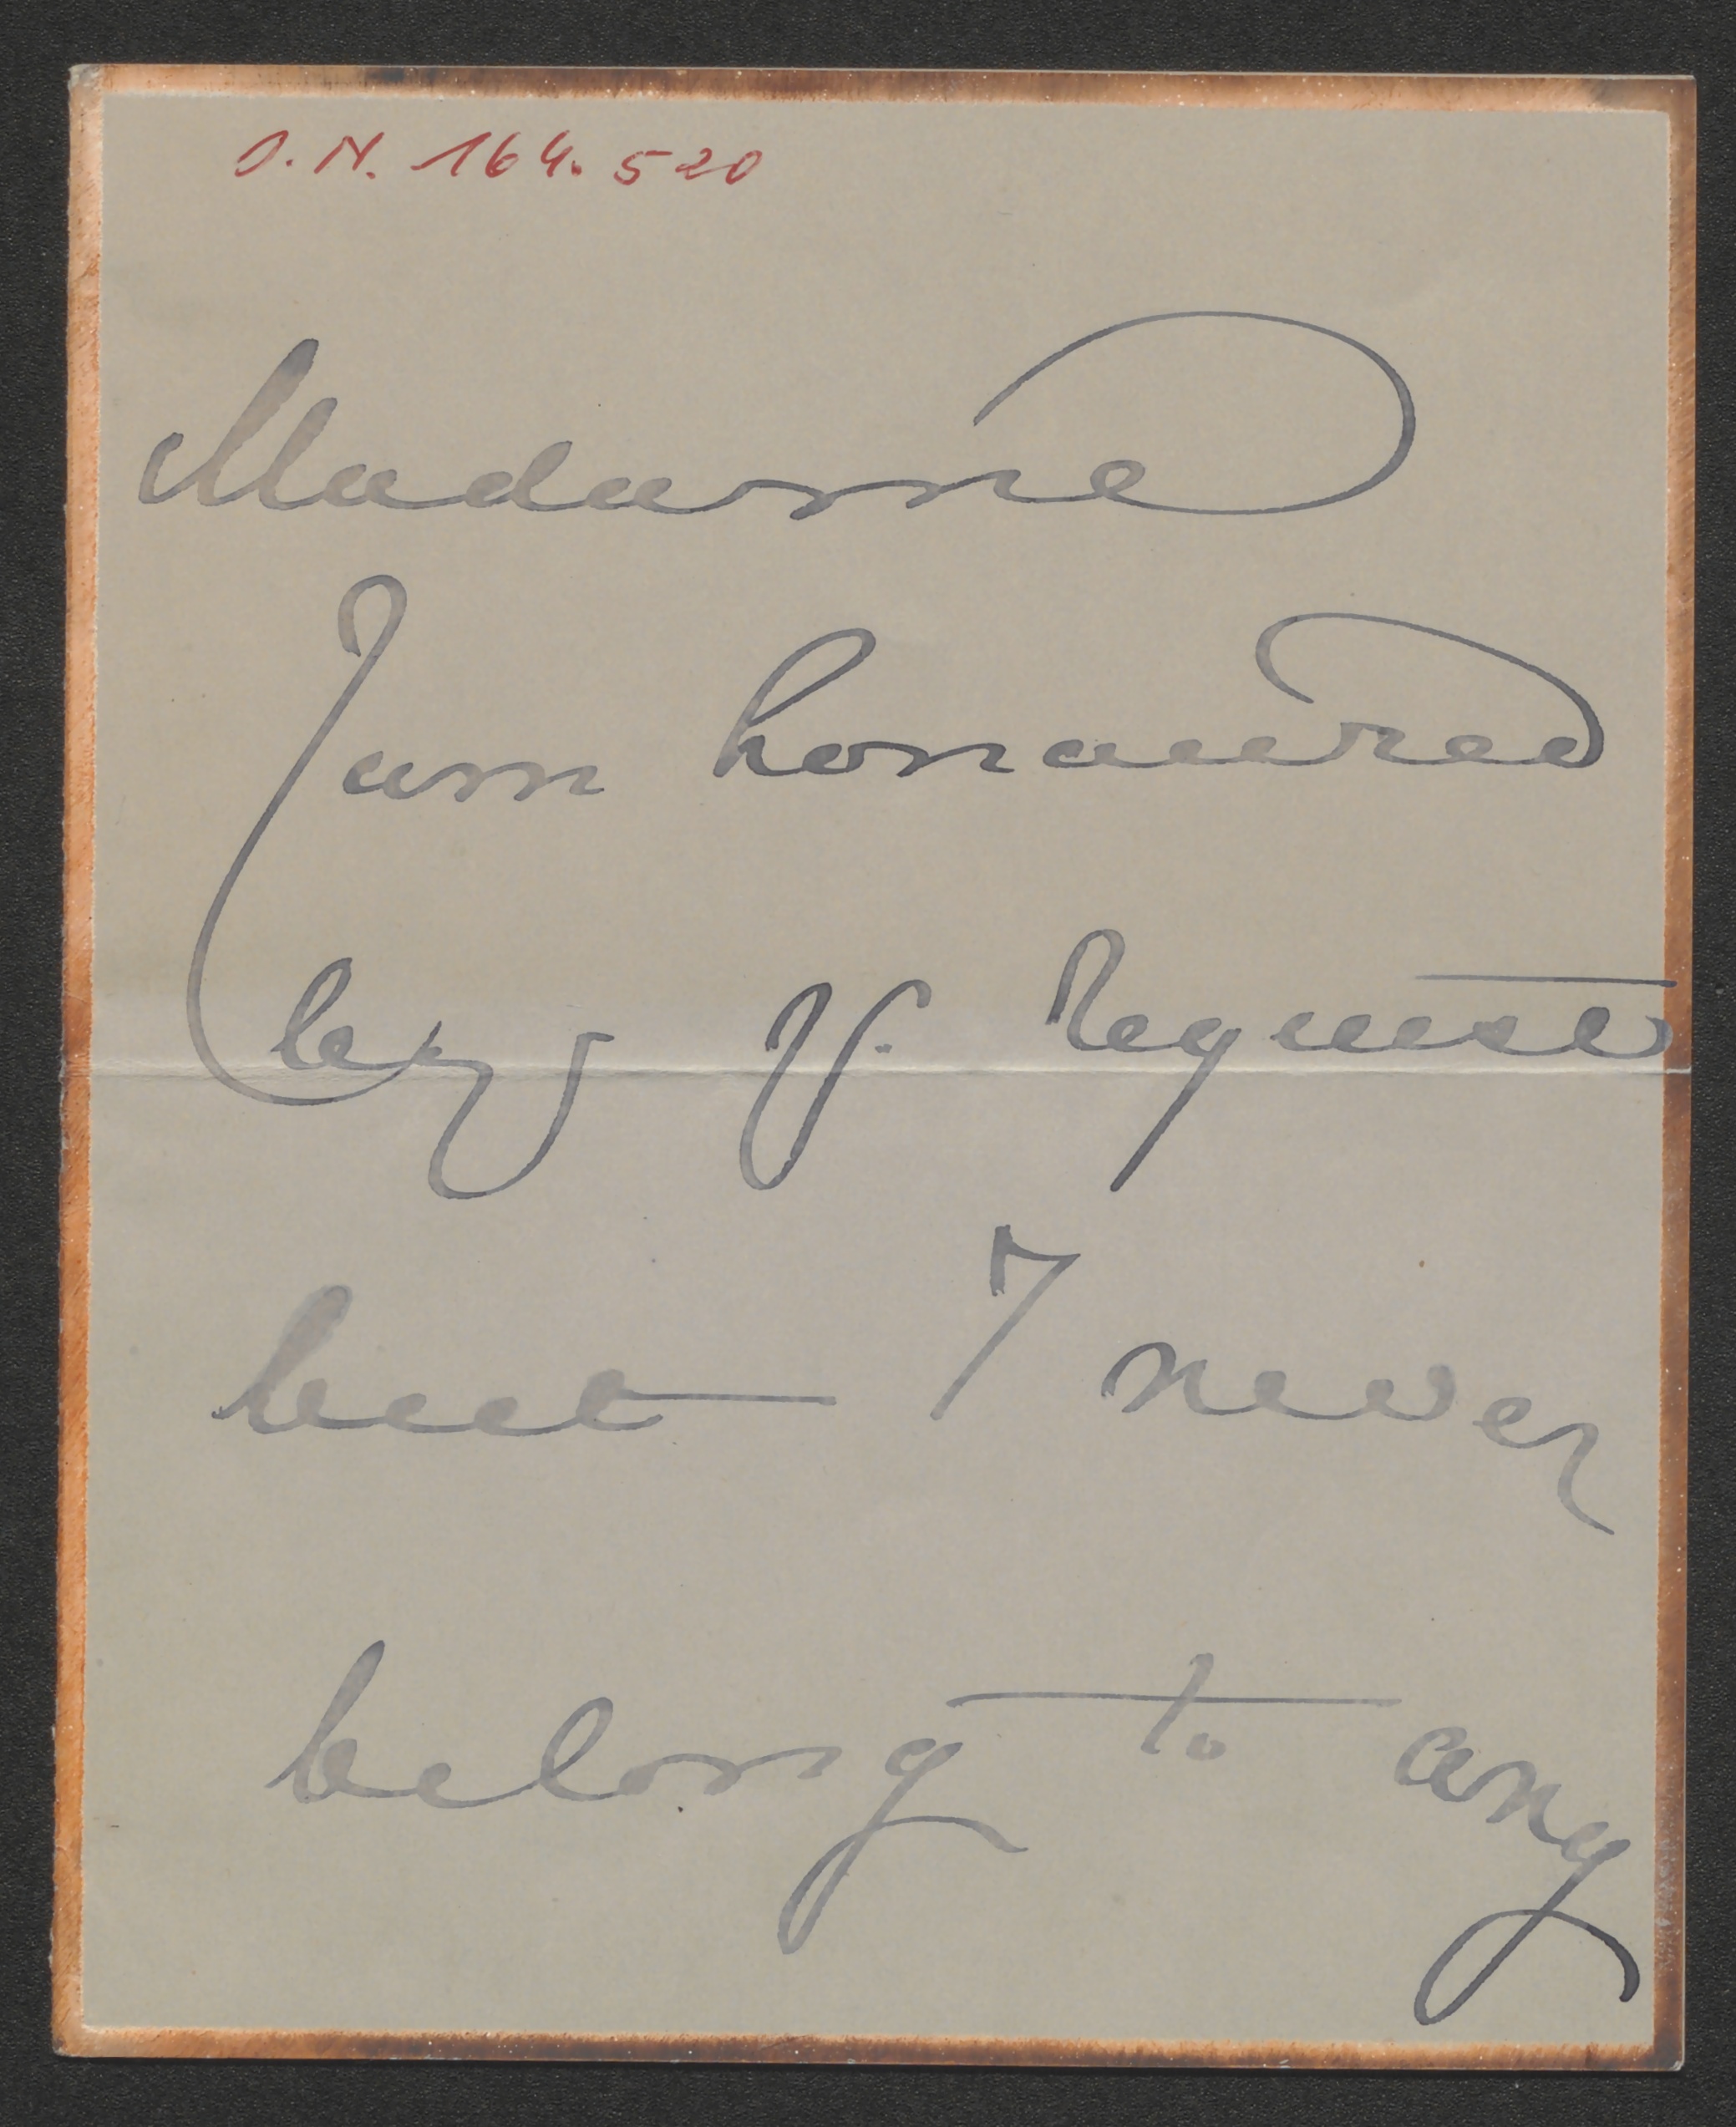 I.N. 164.520
Madame
I am honoured
by yr. request
but I never
belong to any